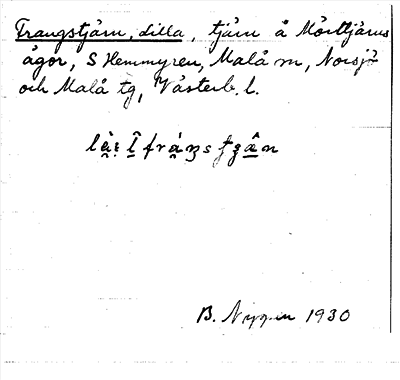 Frangstjärn, Lilla, tjärn å Mörttjärns
ägor, S Hemmyren, Malå sn, Norsjö
och Malå tg, Västerb. l.
B. Nygren 1930